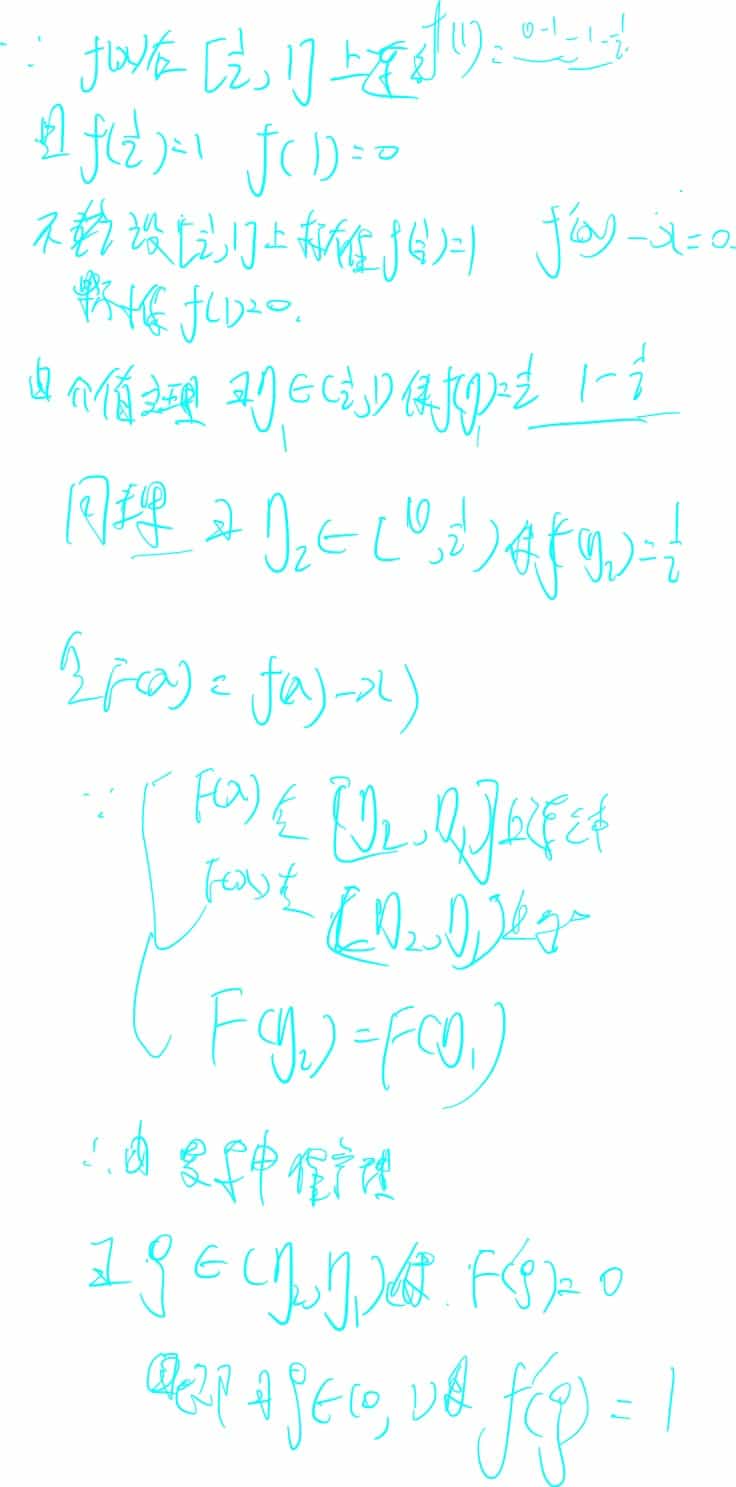 ∵ f(x)在[1/2,1]上连续 f'(1)=
且f(1/2)=1 f(1)=0
不妨设[1/2,1]上 f(1/2)=1 f'(x)-x=0
f(1)=0.
由介值定理 ∃η₁∈(1/2,1)使f(η₁)=1/2 1-1/2
同理 ∃η₂∈(0,1/2)使f(η₂)=1/2
令F(x)=f(x)-x)
∵ F(x)在[η₂,η₁]上连续
F(x)在(η₂,η₁)上可
F(η₂)=F(η₁)
∴由罗尔中值定理
∃ρ∈(η₂,η₁)使F'(ρ)=0
即∃ρ∈(0,1)使f'(ρ)=1